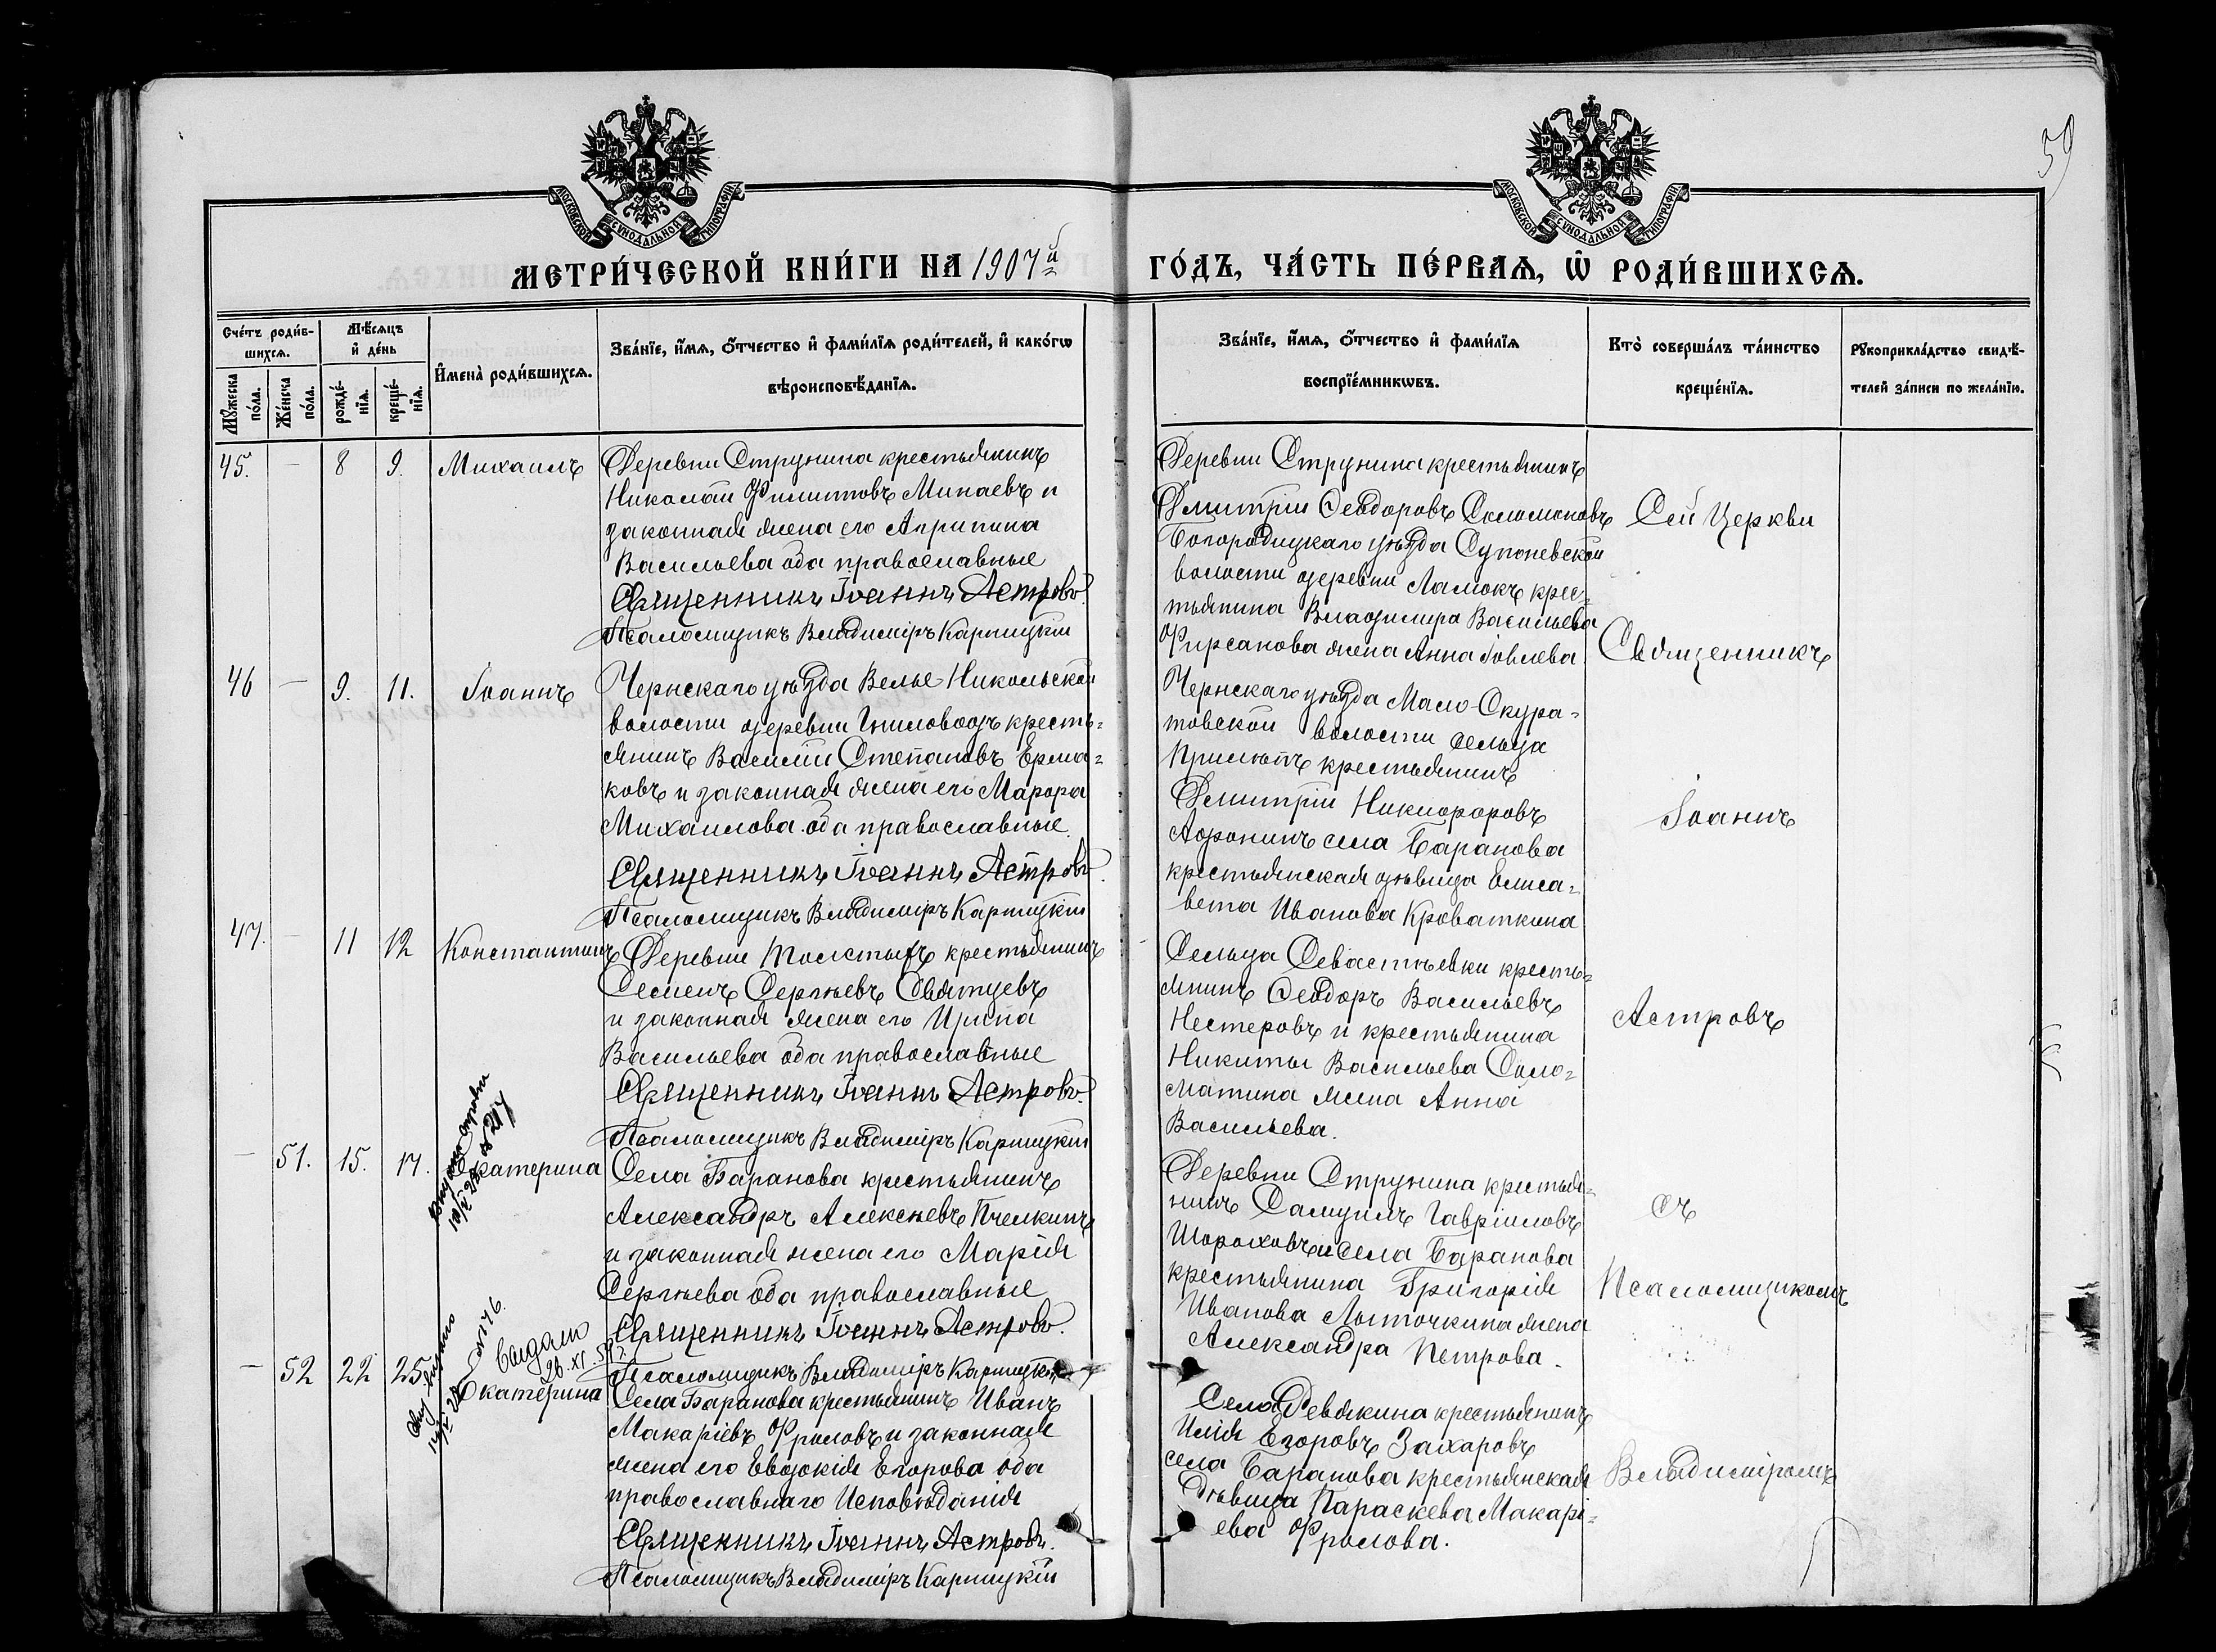 59
МОСКОВСКОЙ СѴНОДАЛЬНОЙ ТИПОГРАФІИ
МОСКОВСКОЙ СѴНОДАЛЬНОЙ ТИПОГРАФІИ
МЕТРИ́ЧЕСКОЙ КНИ́ГИ НА 1907й ГО́ДЪ, ЧА́СТЬ ПЕ́РВАѦ, Ѡ҆ РОДИ́ВШИХСѦ.
Сче́тъ роди́в-
шихсѧ.
Мꙋ́жеска по́ла.
Же́нска по́ла.
Мѣ́сѧцъ
и҆ де́нь
рожде́-
нїѧ.
креще́-
нїѧ.
И҆мена̀ роди́вшихсѧ.
Зва́нїе, и҆́мѧ, ѻ҆́тчество и҆ фами́лїѧ роди́телей, и҆ како́гѡ
вѣроисповѣ́данїѧ.
Зва́нїе, и҆́мѧ, ѻ҆́тчество и҆ фами́лїѧ
воспрїе́мникѡвъ.
Кто̀ соверша́лъ та́инство
креще́нїѧ.
Рꙋкоприкла́дство свидѣ́-
телей за́писи по жела́нїю.
45. — 8 9. Михаилъ
Деревни Струнина крестьянинъ
Николай Филиповъ Минаевъ и
законная жена его Агрипина
Васильева оба православные
Священникъ Іоаннъ Астровъ.
Псаломщикъ Владиміръ Карницкій
Деревни Струнина крестьянинъ
Дмитрій Ѳеодоровъ Соломоновъ
Богородицкаго уѣзда Супоневской
волости деревни Ламокъ крес-
тьянина Владимира Васильева
Фирсанова жена Анна Іовлева.
46 — 9. 11. Іоаннъ
Чернскаго уѣзда Велье-Никольской
волости деревни Гниловодъ кресть-
янинъ Василій Степановъ Ерма-
ковъ и законная жена его Марфа
Михаилова оба православные.
Священникъ Іоаннъ Астровъ.
Псаломщикъ Владиміръ Карницкій
Чернскаго уѣзда Мало-Скура-
товской волости сельца
крестьянинъ
Дмитрій Никифоровъ
Афонинъ села Баранова
крестьянская дѣвица Елиса-
вета Иванова Кроваткина
47. — 11 12 Константинъ
Деревни Толстыхъ крестьянинъ
Семенъ Сергѣевъ
и законная жена его Ирина
Васильева оба православные
Священникъ Іоаннъ Астровъ.
Псаломщикъ Владиміръ Карницкій
Сельца Севастѣевки кресть-
янинъ Ѳеодоръ Васильевъ
Нестеровъ и крестьянина
Никиты Васильева Соло-
матина жена Анна
Васильева.
— 51. 15. 17. Екатерина
Села Баранова крестьянинъ
Александръ Алексѣевъ Пчелкинъ
и законная жена его Марія
Сергѣева оба православные
Священникъ Іоаннъ Астровъ.
Псаломщикъ Владиміръ Карницкій
Деревни Струнина крестья-
нинъ Самуилъ Гавріиловъ
Шороховъ и села Баранова
крестьянина Григорія
Иванова Лыточкина жена
Александра Петрова.
— 52 22 25 Екатерина
Выдано
26.XI.
Села Баранова крестьянинъ Иванъ
Макаріевъ Фроловъ и законная
жена его Евдокія Егорова оба
православнаго Исповѣданія
Священникъ Іоаннъ Астровъ.
Псаломщикъ Владиміръ Карницкій
Села Девякина крестьянинъ
Илія Егоровъ Захаровъ
села Баранова крестьянская
дѣвица Параскева Макарі-
ева Фролова.
Сей Церкви
Священникъ
Іоаннъ
Астровъ
съ
Псаломщикомъ
Владиміромъ